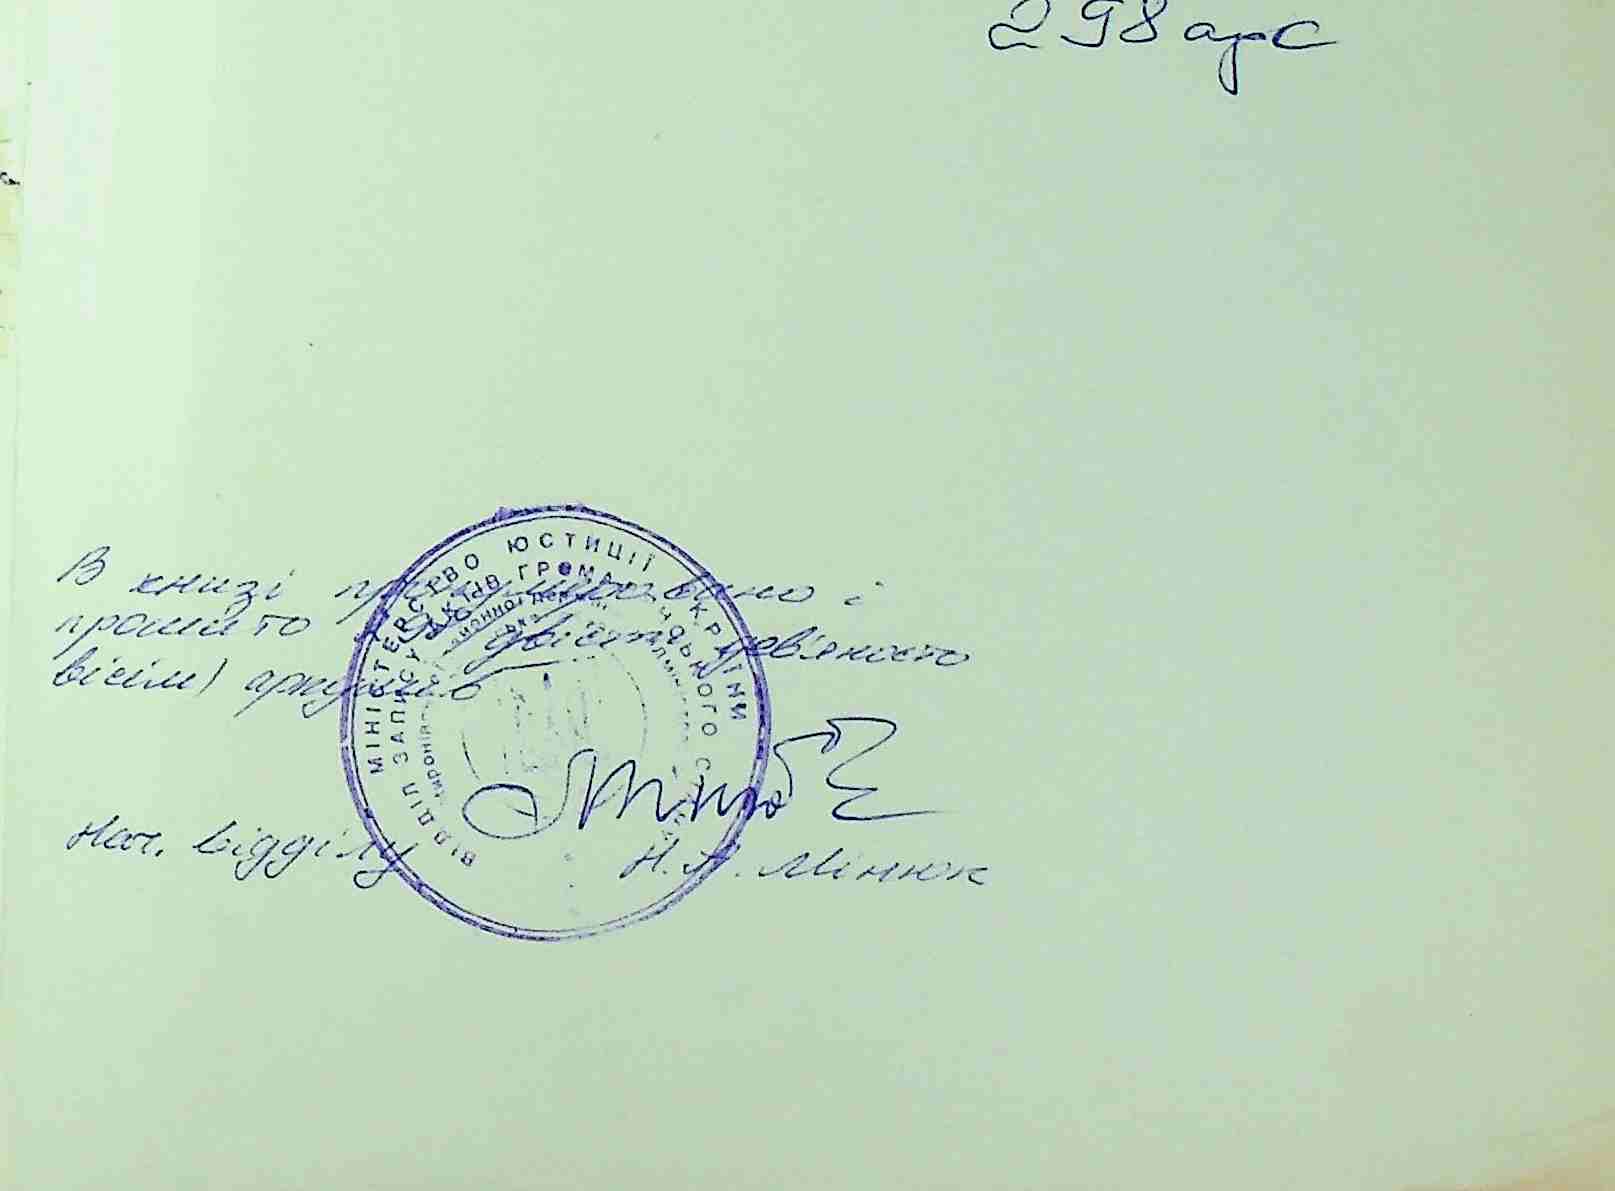 298 арк
В книзі пронумеровано і
прошито 298 (двісті дев'яносто
вісім) аркушів
МІНІСТЕРСТВО ЮСТИЦІЇ УКРАЇНИ
ВІДДІЛ ЗАПИСУ АКТІВ ГРОМАДЯНСЬКОГО СТАНУ
Нач. відділу Н.П. Мінюк